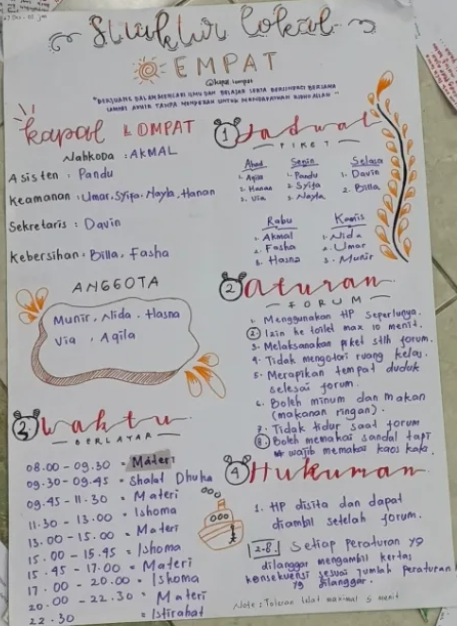 Struktur Lokal
EMPAT
@kapal_lompat
"BERSAMA DALAM MENCARI ILMU DAN BELAJAR SERTA BERSINERGI BERSAMA
UNTUK MENDAPATKAN RIDHO ALLAH"
kapal LOMPAT
Nahkoda : AKMAL
Asisten : Pandu
Keamanan : Umar, Syifa, Nayla, Hanan
Sekretaris : Davin
Kebersihan : Billa, Fasha
ANGGOTA
Munir, Nida, Hasna
Via , Aqila
3 Waktu
BERLAYAR
08.00 - 09.30 = Materi
09.30 - 09.45 = Shalat Dhuha
09.45 - 11.30 = Materi
11.30 - 13.00 = Ishoma
13.00 - 15.00 = Materi
15.00 - 15.45 = Ishoma
15.45 - 17.00 = Materi
17.00 - 20.00 = Ishoma
20.00 - 22.30 = Materi
22.30 = Istirahat
1 Jadwal
PIKET
Ahad
1. Aqila
2. Hanan
3. Via
Senin
1. Pandu
2. Syifa
3. Nayla
Selasa
1. Davin
2. Billa
Rabu
1. Akmal
2. Fasha
3. Hasna
Kamis
1. Nida
2. Umar
3. Munir
2 Aturan
FORUM
1. Menggunakan HP seperlunya.
2 Izin ke toilet max 10 menit.
3. Melaksanakan piket stlh forum.
4. Tidak mengotori ruang kelas.
5. Merapikan tempat duduk
selesai forum.
6. Boleh minum dan makan
(makanan ringan).
7. Tidak tidur saat forum
8. Boleh memakai sandal tapi
wajib memakai kaos kaki.
4 Hukuman
1. HP disita dan dapat
diambil setelah forum.
2-8. Setiap Peraturan yg
dilanggar mengambil kertas
konsekuensi sesuai jumlah peraturan
yg dilanggar.
Note : Toleran telat maksimal 5 menit